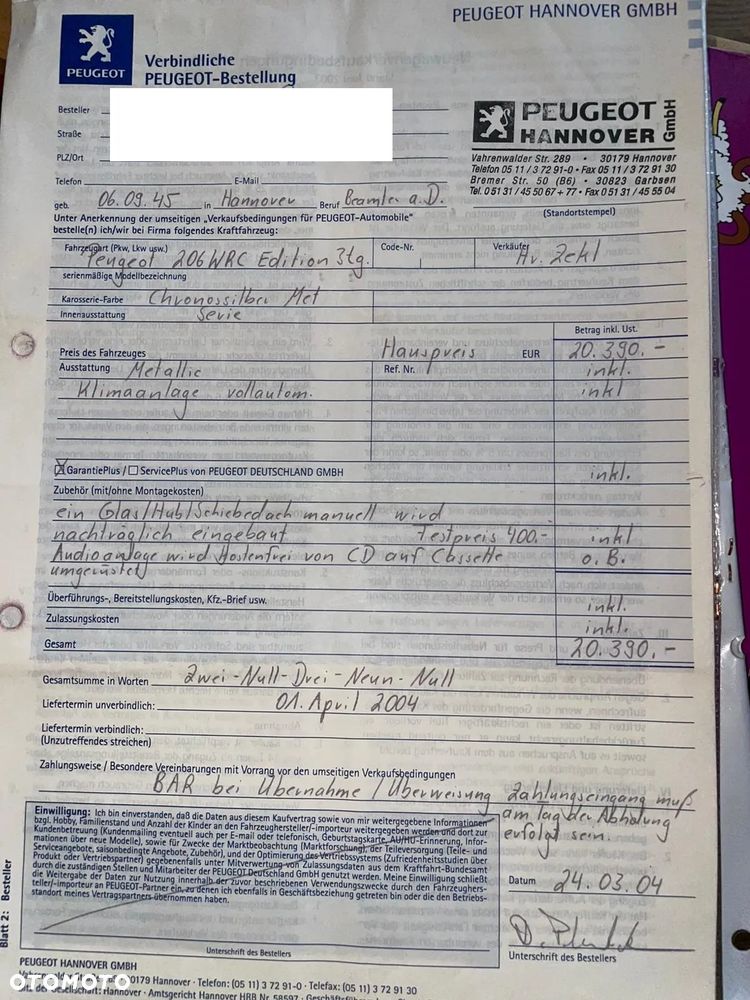 PEUGEOT HANNOVER GMBH
PEUGEOT
Verbindliche
PEUGEOT-Bestellung
Besteller
Straße
PLZ/Ort
PEUGEOT
HANNOVER GmbH
Vahrenwalder Str. 289 • 30179 Hannover
Telefon 05 11 / 3 72 91-0 • Fax 05 11 / 3 72 91 30
Bremer Str. 50 (B6) • 30823 Garbsen
Tel. 0 51 31 / 45 50 67 + 77 • Fax 0 51 31 / 45 55 04
Telefon E-Mail
geb. 06.09.45 in Hannover Beruf Beamter a.D.
(Standortstempel)
Unter Anerkennung der umseitigen „Verkaufsbedingungen für PEUGEOT-Automobile"
bestelle(n) ich/wir bei Firma folgendes Kraftfahrzeug:
Fahrzeugart (Pkw, Lkw usw.) Code-Nr. Verkäufer
Peugeot 206 WRC Edition 3tg. Hr.
serienmäßige Modellbezeichnung
Karosserie-Farbe Chronossilber Met
Innenausstattung Serie
Betrag inkl. Ust.
Preis des Fahrzeuges Hauspreis EUR 20.390.-
Ausstattung Metallic Ref. Nr. inkl.
Klimaanlage vollautom. inkl
☒ GarantiePlus / ☐ ServicePlus von PEUGEOT DEUTSCHLAND GMBH inkl.
Zubehör (mit/ohne Montagekosten)
ein Glas/Hub/Schiebedach manuell wird
nachträglich eingebaut Testpreis 400.- inkl
Audioanlage wird Kostenfrei von CD auf Cassette o.B.
umgerüstet
Überführungs-, Bereitstellungskosten, Kfz.-Brief usw. inkl.
Zulassungskosten inkl.
Gesamt 20.390.-
Gesamtsumme in Worten Zwei-Null-Drei-Neun-Null
Liefertermin unverbindlich: 01. April 2004
Liefertermin verbindlich:
(Unzutreffendes streichen)
Zahlungsweise / Besondere Vereinbarungen mit Vorrang vor den umseitigen Verkaufsbedingungen
BAR bei Übernahme / Überweisung Zahlungseingang muß
am Tag der Abholung
erfolgt sein.
Einwilligung: Ich bin einverstanden, daß die Daten aus diesem Kaufvertrag sowie von mir weitergegebene Informationen
bzgl. Hobby, Familienstand und Anzahl der Kinder an den Fahrzeughersteller/-importeur weitergegeben werden und dort zur
Kundenbetreuung (Kundenmailing eventuell auch per E-mail oder telefonisch, Geburtstagskarte, AU/HU-Erinnerung, Infor-
mationen über neue Modelle), sowie für Zwecke der Marktbeobachtung (Marktforschung), der Teileversorgung (Teile- und
Serviceangebote, saisonbedingte Angebote, Zubehör), und der Optimierung des Vertriebssystems (Zufriedenheitsstudien über
Produkt oder Vertriebspartner) gegebenenfalls unter Mitverwertung von Zulassungsdaten aus dem Kraftfahrt-Bundesamt
durch die zuständigen Stellen und Mitarbeiter der PEUGEOT Deutschland GmbH genutzt werden. Meine Einwilligung schließt
die Weitergabe der Daten zur Nutzung innerhalb der zuvor beschriebenen Verwendungszwecke durch den Fahrzeughers-
teller/-importeur an PEUGEOT-Partner ein, zu denen ich ebenfalls in Geschäftsbeziehung getreten bin oder die den Betriebs-
standort meines Vertragspartners übernommen haben.
Datum 24.03.04
Unterschrift des Bestellers
Unterschrift des Bestellers
Blatt 2: Besteller
PEUGEOT HANNOVER GMBH
30179 Hannover · Telefon: (05 11) 3 72 91-0 · Telefax: (05 11) 3 72 91 30
Sitz der Gesellschaft: Hannover · Amtsgericht Hannover HRB Nr. 58597 ·
OTOMOTO